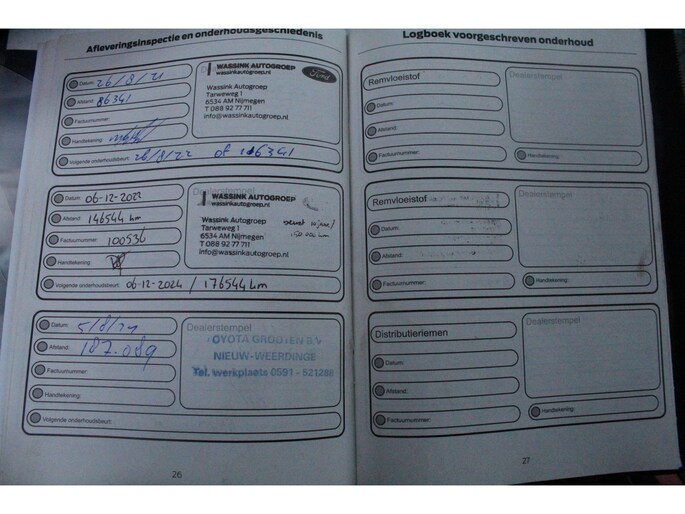 Afleveringsinspectie en onderhoudsgeschiedenis
Datum: 26/8/21
Afstand: 86341
Factuurnummer:
Handtekening:
Volgende onderhoudsbeurt: 26/8/22 of 116341
WASSINK AUTOGROEP
wassinkautogroep.nl
Ford
Wassink Autogroep
Tarweweg 1
6534 AM Nijmegen
T 088 92 77 711
info@wassinkautogroep.nl
Datum: 06-12-2022
Afstand: 146544 km
Factuurnummer: 100536
Handtekening:
Volgende onderhoudsbeurt: 06-12-2024 / 176544 km
Dealerstempel
WASSINK AUTOGROEP
wassinkautogroep.nl
Wassink Autogroep
Tarweweg 1
6534 AM Nijmegen
T 088 92 77 711
info@wassinkautogroep.nl
Datum: 5/8/24
Afstand: 187.089
Factuurnummer:
Handtekening:
Volgende onderhoudsbeurt:
Dealerstempel
OYOTA GROOTEN BV
NIEUW-WEERDINGE
Tel. werkplaats 0591 - 521288
26
Logboek voorgeschreven onderhoud
Remvloeistof
Datum:
Afstand:
Factuurnummer:
Dealerstempel
Handtekening:
Remvloeistof
Datum:
Afstand:
Factuurnummer:
Dealerstempel
Handtekening:
Distributieriemen
Datum:
Afstand:
Factuurnummer:
Dealerstempel
Handtekening:
27